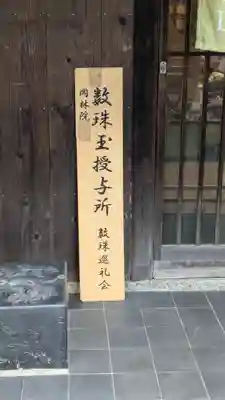 岡林院
数珠玉授与所
数珠巡礼会